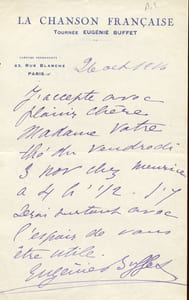 LA CHANSON FRANÇAISE
TOURNÉE EUGÉNIE BUFFET
ADRESSE PERMANENTE
43, RUE BLANCHE
PARIS
26 oct
J'accepte avec
plaisir chère
Madame votre
thé du vendredi
3 nov chez meurice
a 4 h 1/2. j'y
serai surtout avec
l'espoir de vous
être utile.
Eugénie Buffet